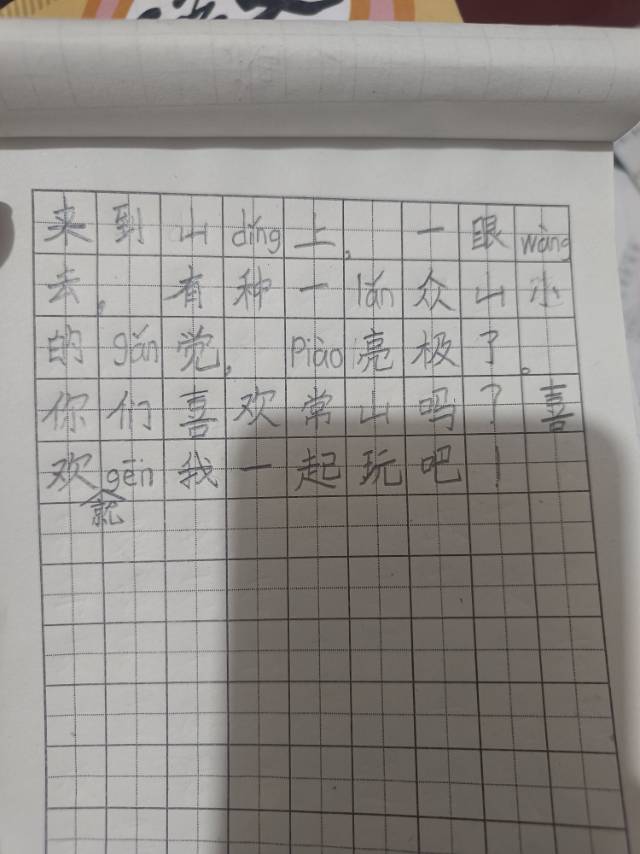 来到山dǐng上，一眼wàng
去，有种一lǎn众山小
的gǎn觉，piào亮极了。
你们喜欢常山吗？喜
欢gēn我一起玩吧！
就